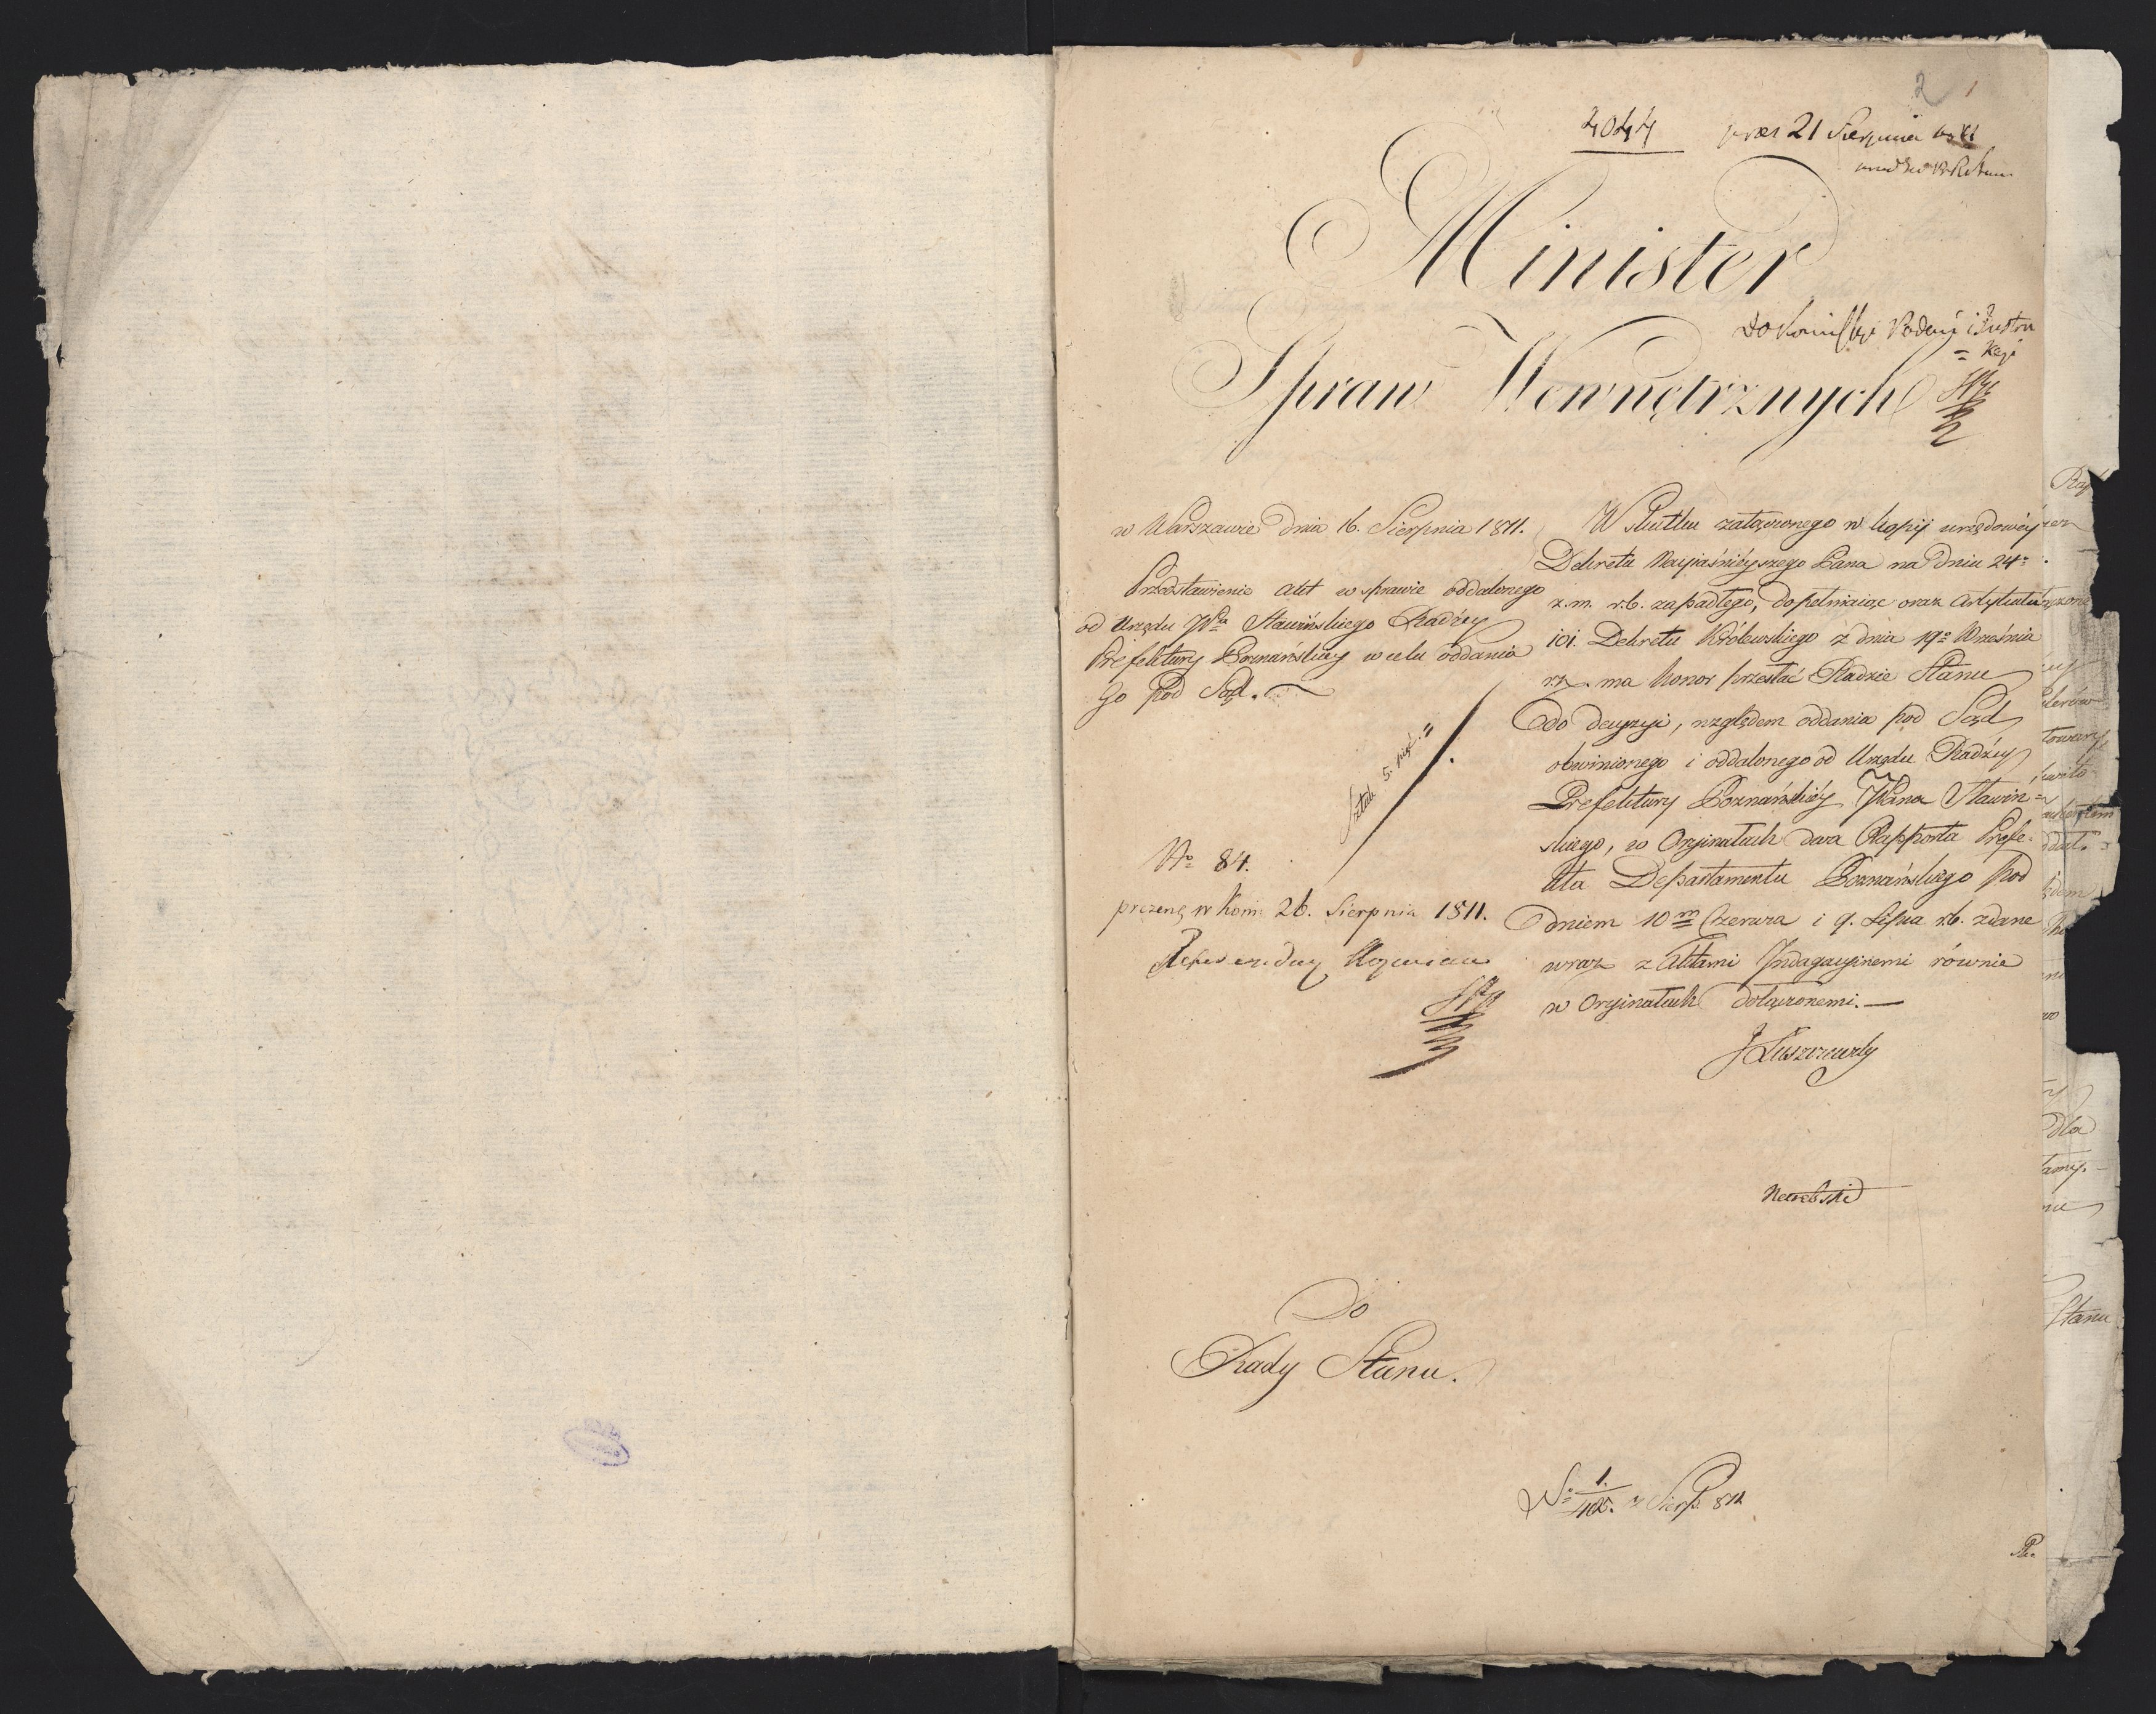 2
4044 prez 21 Sierpnia
Minister
Do Komissyi Podań i Instru
=kcyi
Spraw Wewnętrznych
w Warszawie Dnia 16. Sierpnia 1811.
Przedstawienie Akt w sprawie oddalonego
od Urzędu JPa Sławińskiego Radźcy
Prefektury Poznańskiey w celu oddania
Go pod Sąd.
Sztuk 5. pięć.
No 84.
prezenę w Kom: 26. Sierpnia 1811.
Referendarz Kozmian
W Skutku załączonego w kopij urzędowéy
Dekretu Nayiaśniéyszego Pana na Dniu 24o
z.m. r.b. zapadłego, dopełniaiąc oraz Artykułu
101. Dekretu Królewskiego z dnia 19o Września
r.z. ma honor przesłać Radzie Stanu
do decyzyi, względem oddania pod Sąd
obwinionego i oddalonego od Urzędu Radźcy
Prefektury Poznańskiéy JPana Sławiń=
skiego, w Orginałach dwa Rapporta Prefe=
kta Departamentu Poznańskiego pod
dniem 10m Czerwca i 9. Lipca r.b. zdane
wraz z Aktami Indagacyinemi równie
w Orginałach dołączonemi.—
J Łuszczewsky
Do
Rady Stanu.
No 1/402. z Sierp. 811
Stanu
dla